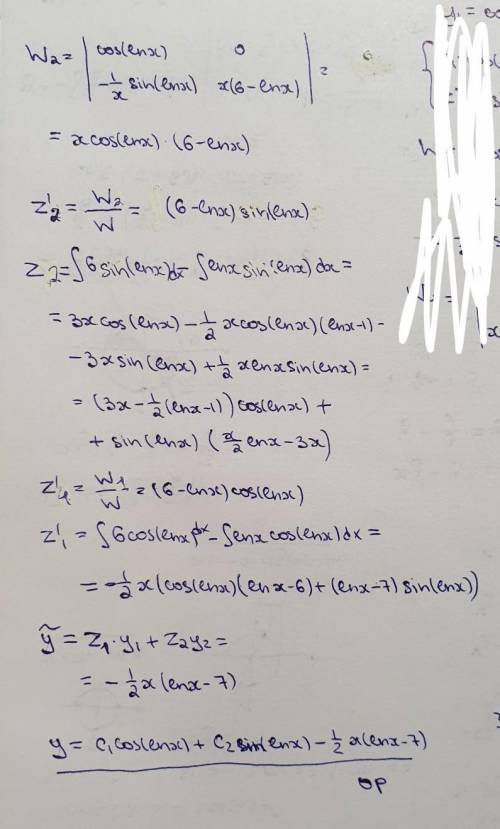 W₂ = | cos(lnx) 0 |
| -1/x sin(lnx) x(6-lnx) | =
= xcos(lnx)·(6-lnx)
z'₂ = W₂/W = (6-lnx)sin(lnx)
z₂ = ∫6sin(lnx)dx - ∫lnxsin(lnx)dx =
= 3xcos(lnx) - 1/2 xcos(lnx)(lnx-1) -
- 3xsin(lnx) + 1/2 xlnxsin(lnx) =
= (3x - 1/2(lnx-1))cos(lnx) +
+ sin(lnx)(x/2 lnx - 3x)
z'₁ = W₁/W = (6-lnx)cos(lnx)
z'₁ = ∫6cos(lnx)dx - ∫lnxcos(lnx)dx =
= -1/2 x(cos(lnx)(lnx-6) + (lnx-7)sin(lnx))
ỹ = z₁·y₁ + z₂y₂ =
= -1/2 x(lnx-7)
y = c₁cos(lnx) + c₂sin(lnx) - 1/2 x(lnx-7)